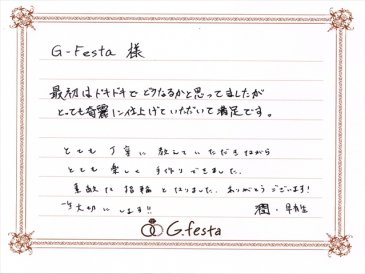 G-Festa 様
最初はドキドキでどうなるかと思ってましたが
とっても奇麗に仕上げていただいて満足です。
とても丁寧に教えていただきながら
とても楽しく手作りできました。
素敵な指輪となりました。ありがとうございます!
一生大切にします!!
潤・早有生
G.festa